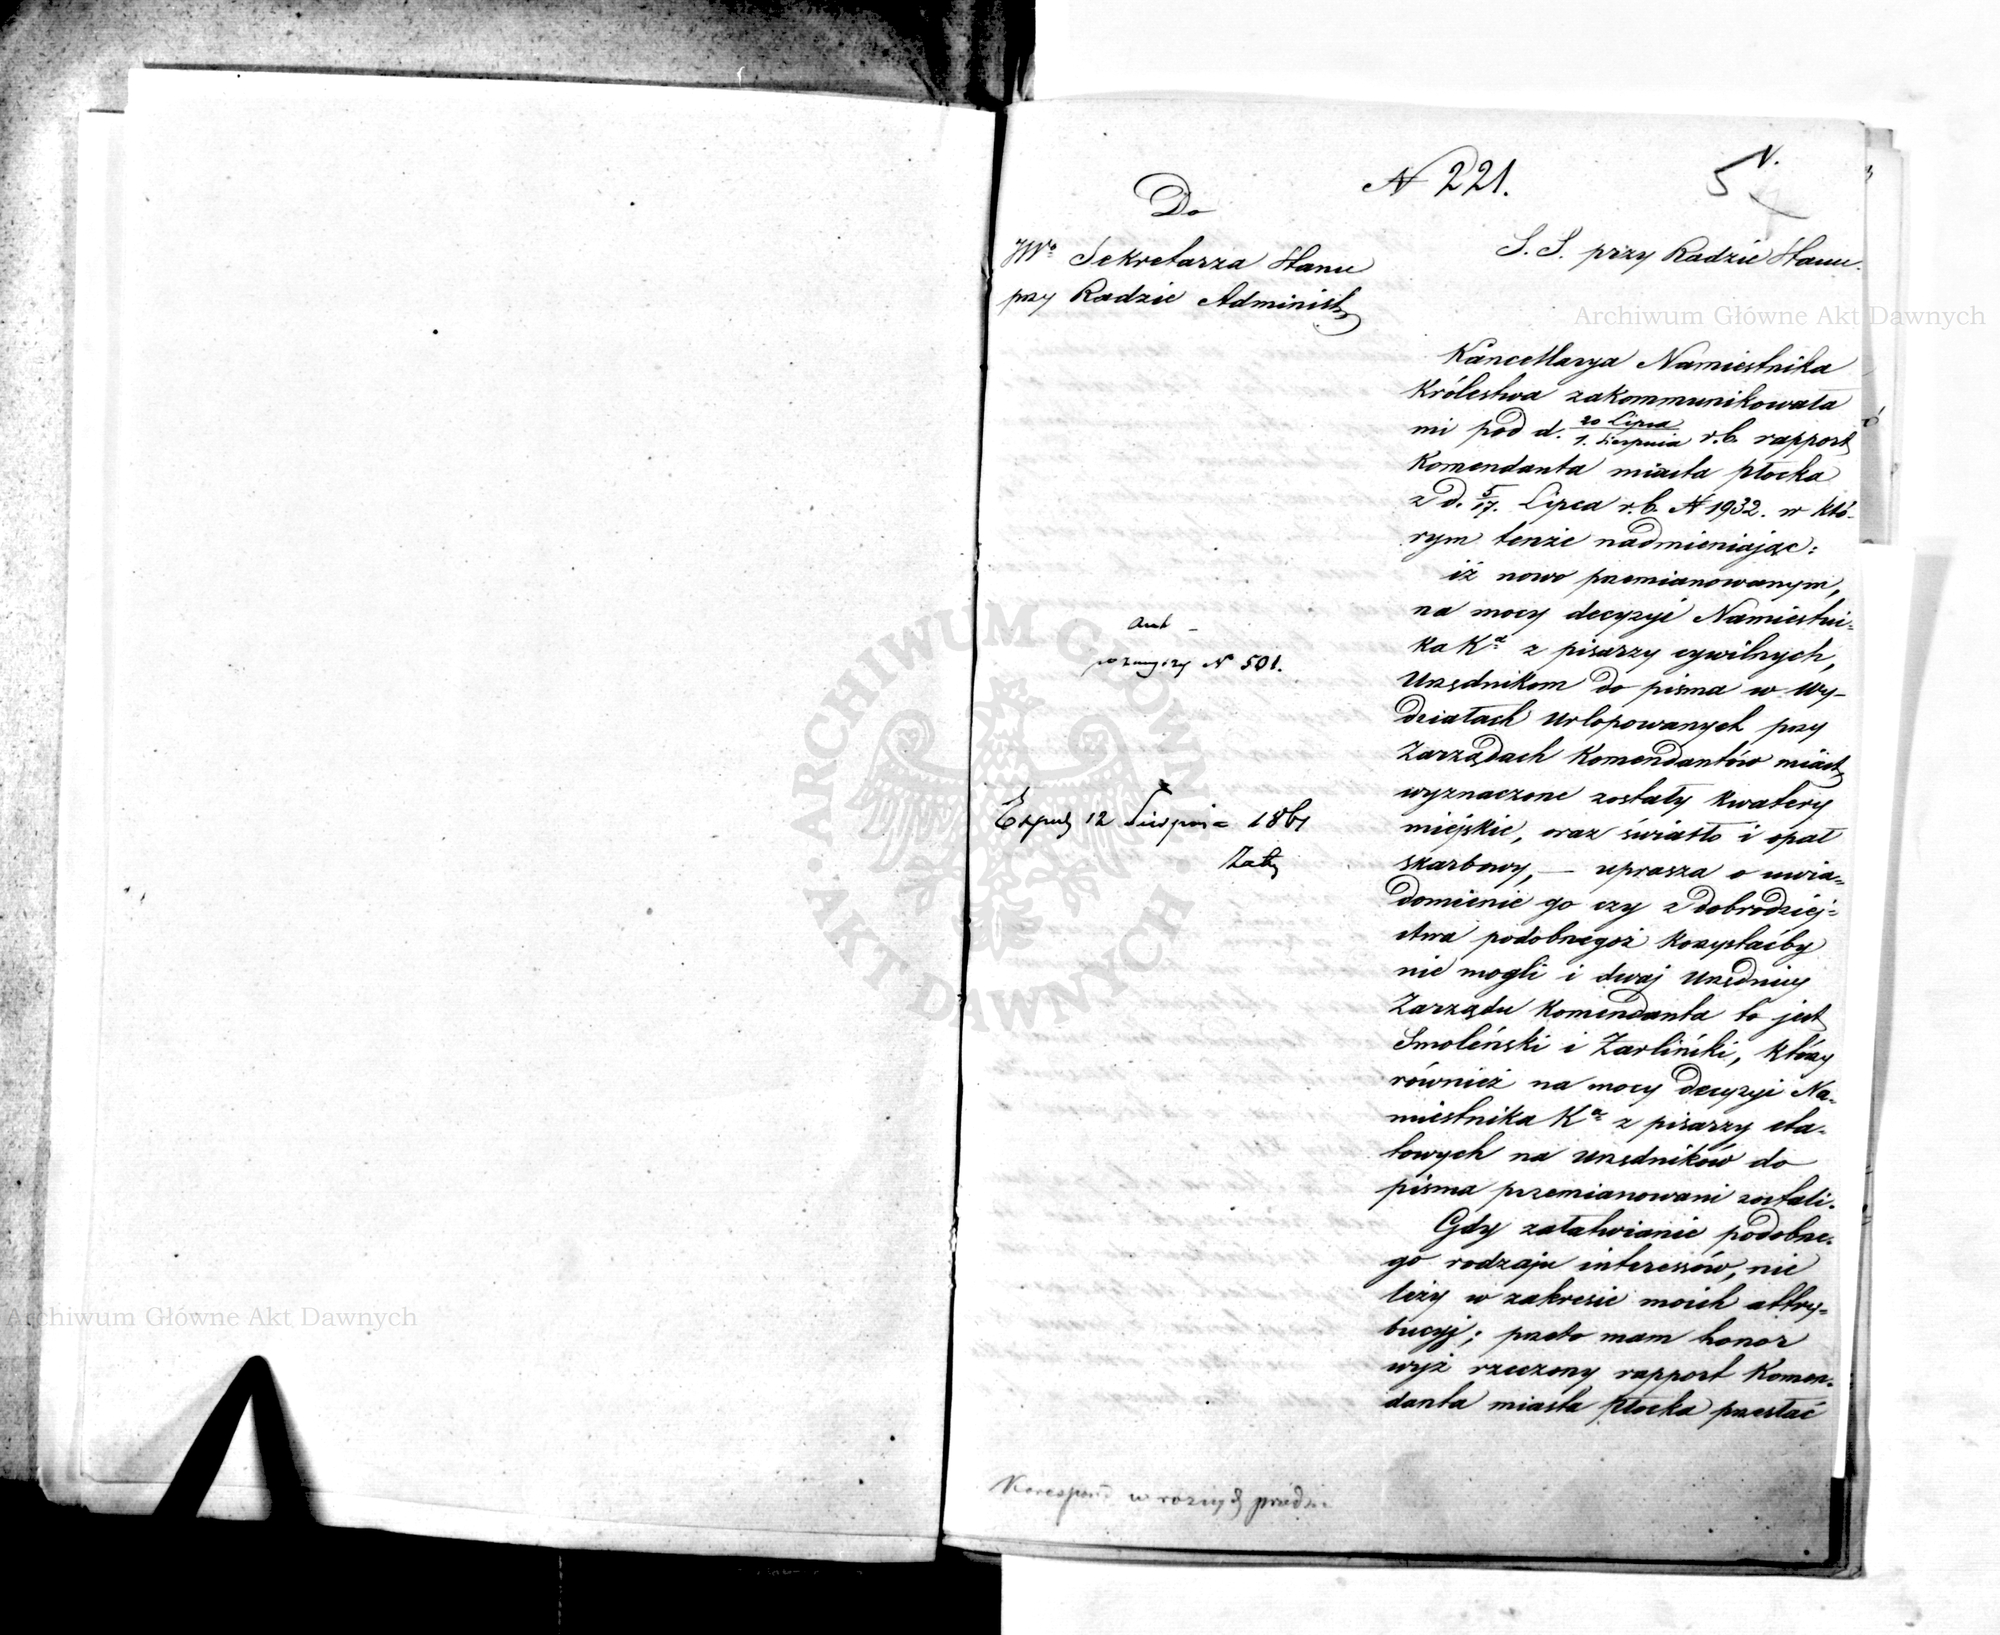 N 221.
5
Do
JWo Sekretarza Stanu
przy Radzie Administ
S. S. przy Radzie Stanu.
Kancellarya Namiestnika
Królestwa zakommunikowała
mi pod d. 20 Lipca / 1. Sierpnia r.b. rapport
Komendanta miasta Płocka
z d. 5/17. Lipca r.b. N 1932. w któ-
rym tenże nadmieniając:
iż nowo przemianowanym,
na mocy decyzyi Namiestni-
ka Ka z pisarzy cywilnych,
Urzędnikom do pisma w Wy-
działach Urlopowanych przy
Zarządach Komendantów miast
wyznaczone zostały kwatery
miejskie, oraz światło i opał
skarbowy, — uprasza o uwia-
domienie go czy z dobrodziej-
stwa podobnegoż korzystaćby
nie mogli i dwaj Urzędnicy
Zarządu Komendanta to jest
Smoleński i Żarliński, którzy
również na mocy decyzyi Na-
miestnika Ka z pisarzy eta-
towych na urzędników do
pisma przemianowani zostali.
Gdy załatwianie podobne-
go rodzaju interessów, nie
leży w zakresie moich attry-
bucyj; przeto mam honor
wyż rzeczony rapport Komen-
danta miasta Płocka przesłać
N 501.
12 Sierpnia 1861
Korespond w różnych przedm
Archiwum Główne Akt Dawnych
Archiwum Główne Akt Dawnych
ARCHIWUM GŁÓWNE · AKT DAWNYCH ·